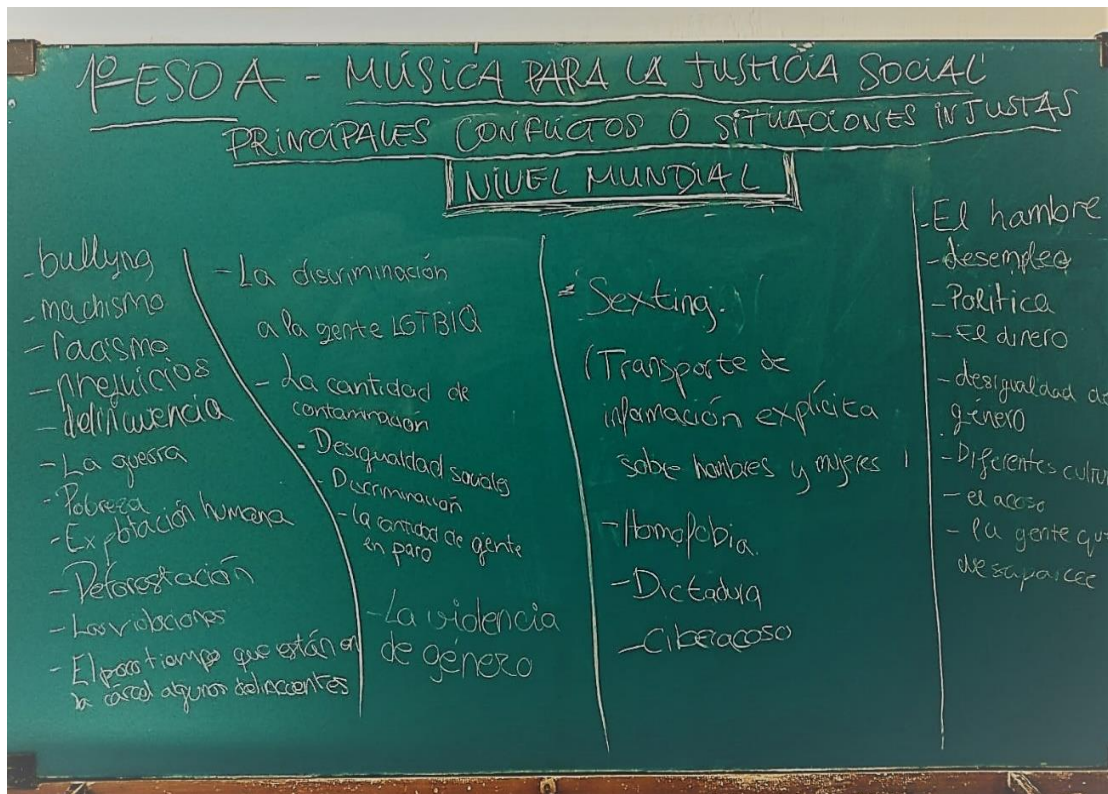 1º ESO A - MÚSICA PARA LA JUSTICIA SOCIAL
PRINCIPALES CONFLICTOS O SITUACIONES INJUSTAS
NIVEL MUNDIAL
- bullyng
- machismo
- racismo
- prejuicios
- delincuencia
- La guerra
- Pobreza
- Explotación humana
- Deforestación
- Las violaciones
- El poco tiempo que están en
la cárcel algunos delincuentes
- La discriminación
a la gente LGTBIQ
- La cantidad de
contaminación
- Desigualdad sociales
- Discriminación
- la cantidad de gente
en paro
- La violencia
de género
- Sexting.
(Transporte de
información explícita
sobre hombres y mujeres )
- Homofobia.
- Dictadura
- Ciberacoso
- El hambre
- desempleo
- Política
- El dinero
- desigualdad de
género
- Diferentes cultur
- el acoso
- la gente qu
desaparece